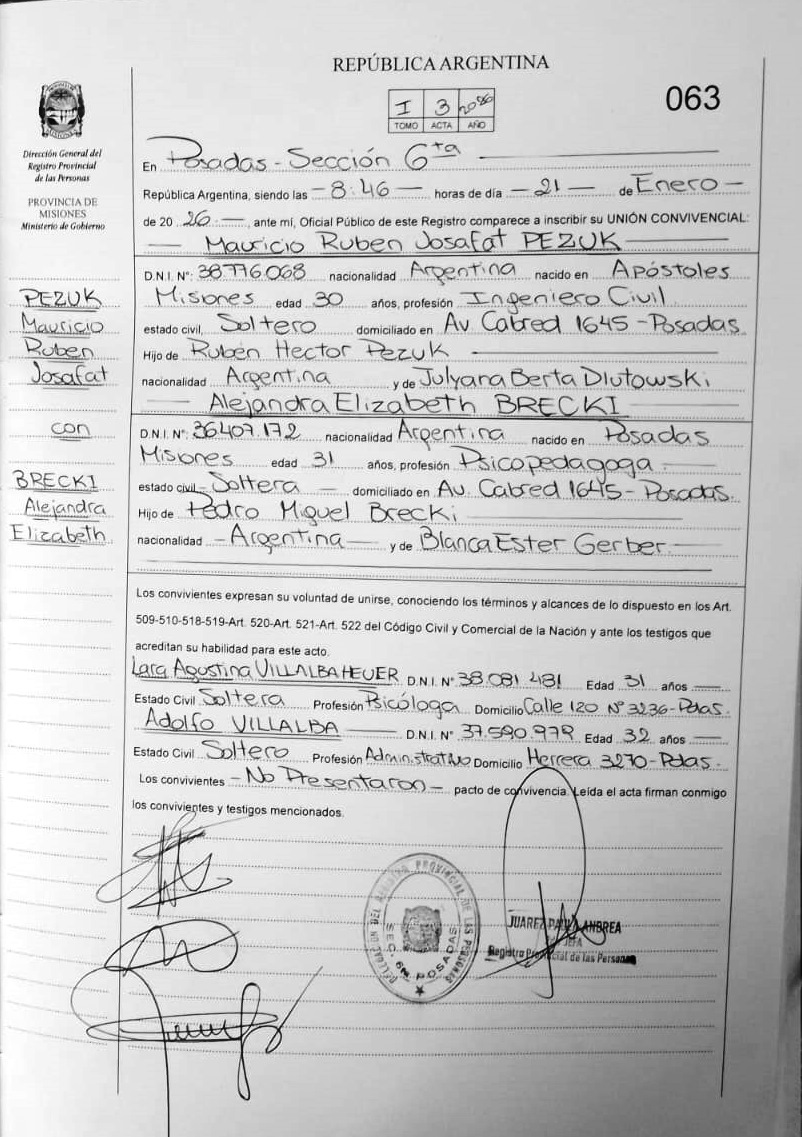 REPÚBLICA ARGENTINA
063
I 3 2026
TOMO ACTA AÑO
Dirección General del
Registro Provincial
de las Personas
PROVINCIA DE
MISIONES
Ministerio de Gobierno
En Posadas - Sección 6ta
República Argentina, siendo las - 8:46 - horas de día - 21 - de Enero -
de 20 26 -, ante mí, Oficial Público de este Registro comparece a inscribir su UNIÓN CONVIVENCIAL:
Mauricio Ruben Josafat PEZUK
PEZUK
Mauricio
Ruben
Josafat
con
BRECKI
Alejandra
Elizabeth
D.N.I. N°: 38.776.068 nacionalidad Argentina nacido en Apóstoles
Misiones edad 30 años, profesión Ingeniero Civil
estado civil, Soltero domiciliado en Av Cabred 1645 - Posadas
Hijo de Ruben Hector Pezuk
nacionalidad Argentina y de Julyana Berta Dlutowski
Alejandra Elizabeth BRECKI
D.N.I. N°: 36.407.172 nacionalidad Argentina nacido en Posadas
Misiones edad 31 años, profesión Psicopedagoga
estado civil - Soltera - domiciliado en Av. Cabred 1645 - Posadas.
Hijo de Pedro Miguel Brecki
nacionalidad - Argentina - y de Blanca Ester Gerber
Los convivientes expresan su voluntad de unirse, conociendo los términos y alcances de lo dispuesto en los Art.
509-510-518-519-Art. 520-Art. 521-Art. 522 del Código Civil y Comercial de la Nación y ante los testigos que
acreditan su habilidad para este acto.
Lara Agustina VILLALBA HEUER D.N.I. N° 38.081.481 Edad 31 años
Estado Civil Soltera Profesión Psicóloga Domicilio Calle 120 N° 3236 - Pdas.
Adolfo VILLALBA D.N.I. N° 37.590.979 Edad 32 años
Estado Civil Soltero Profesión Administrativo Domicilio Herrera 3270 - Pdas.
Los convivientes - No Presentaron - pacto de convivencia. Leída el acta firman conmigo
los convivientes y testigos mencionados.
DELEGACION DEL REGISTRO PROVINCIAL DE LAS PERSONAS
SEC. 6ta POSADAS
JUAREZ PAULA ANDREA
JEFA
Registro Provincial de las Personas